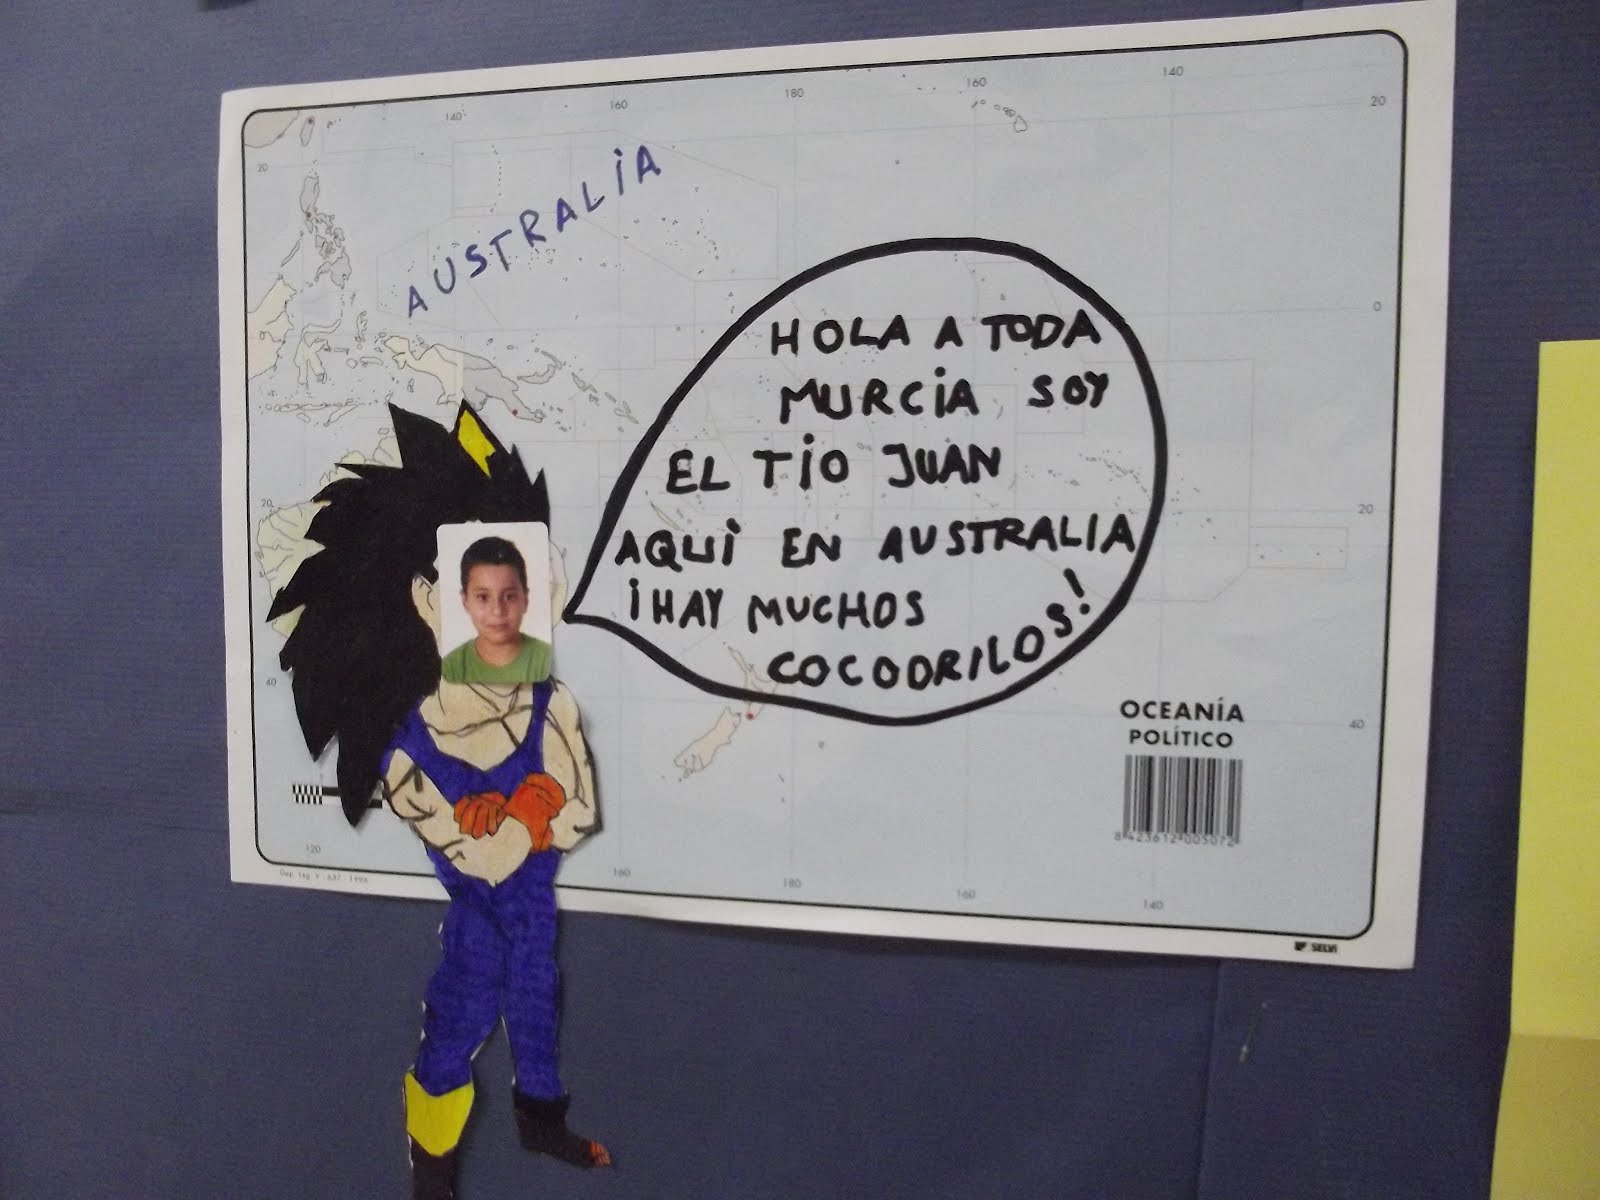 140
160
180
160
140
20
20
AUSTRALiA
0
HOLA A TODA
MURCiA SOY
EL TiO JUAN
AQUi EN AUSTRALIA
¡HAY MUCHOS
COCODRILOS!
20
20
40
40
OCEANÍA
POLÍTICO
8 423612 005072
120
160
180
160
140
Dep. Leg. V. 637 - 1996
SELVI